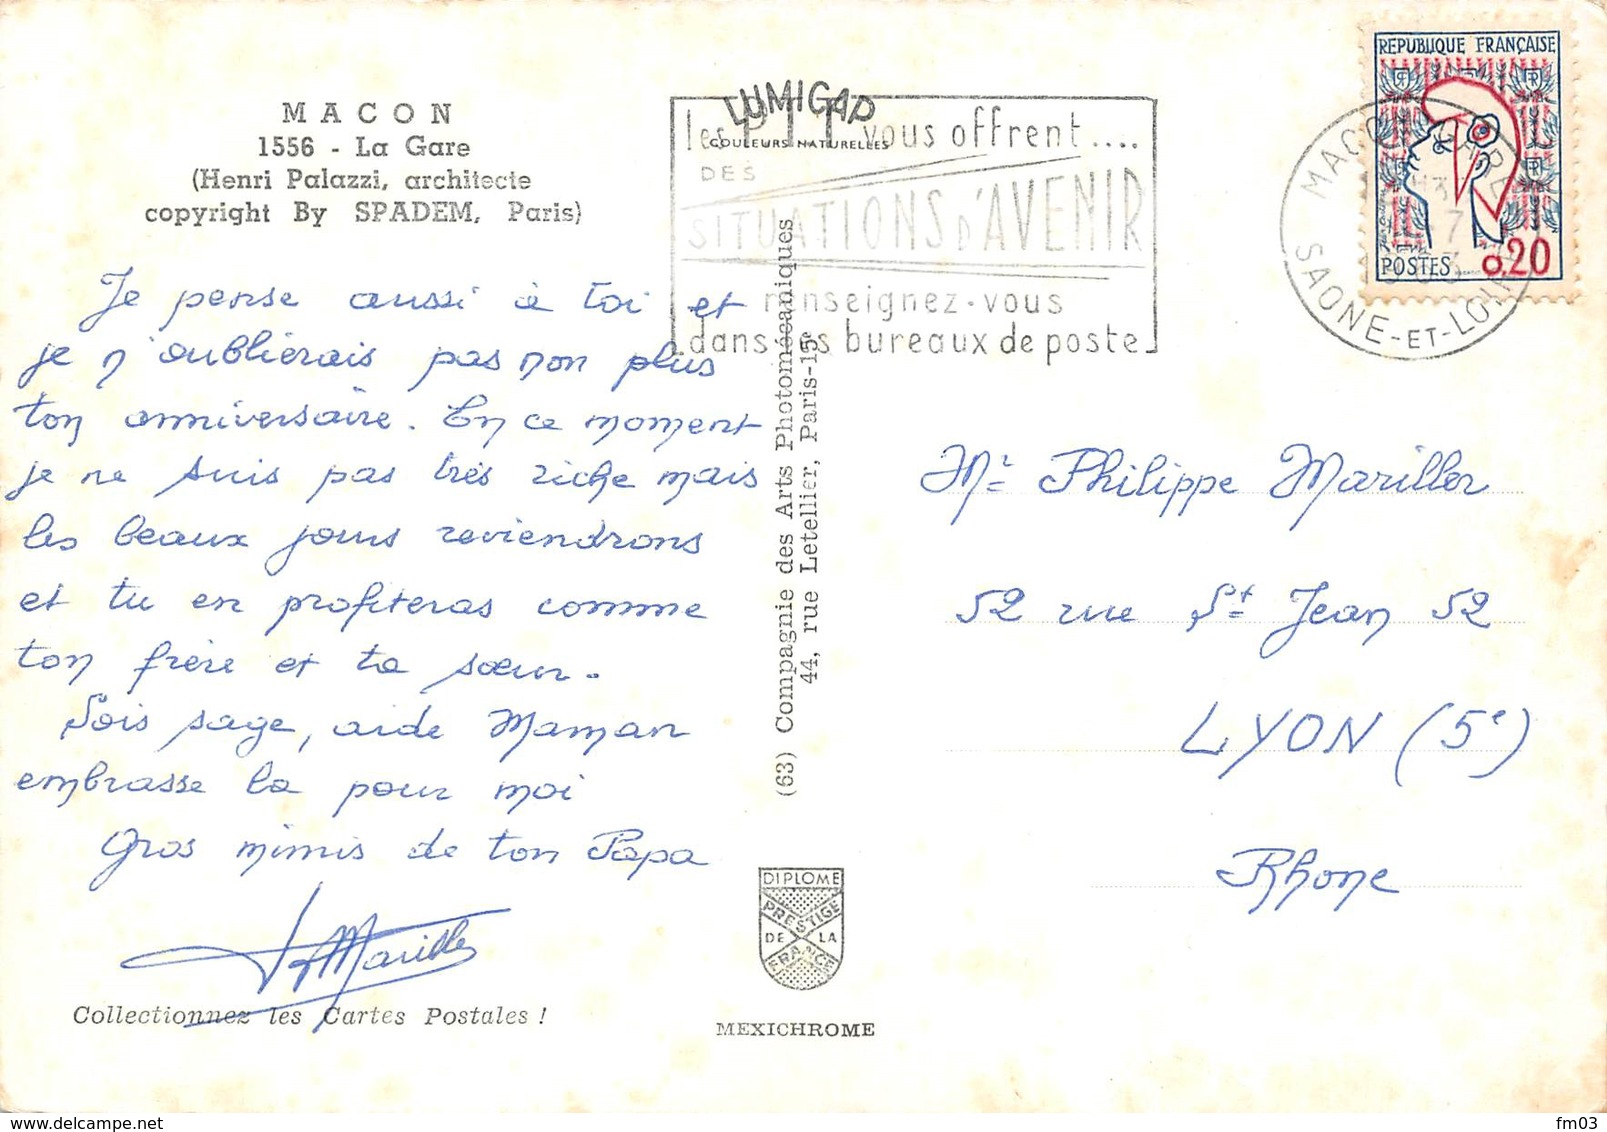 MACON
1556 - La Gare
(Henri Palazzi, architecte
copyright By SPADEM, Paris)
Je pense aussi à toi et
je n'oublierais pas non plus
ton anniversaire. En ce moment
je ne suis pas très riche mais
les beaux jours reviendrons
et tu en profiteras comme
ton frère et ta sœur.
Sois sage, aide Maman
embrasse la pour moi
Gros mimis de ton Papa
Mariller
Collectionnez les Cartes Postales !
LUMICAP
COULEURS NATURELLES
les PTT vous offrent....
DES
SITUATIONS D'AVENIR
renseignez-vous
dans les bureaux de poste
(63) Compagnie des Arts Photomécaniques
44, rue Letellier, Paris-15e
DIPLOME
PRESTIGE
DE LA
FRANCE
MEXICHROME
REPUBLIQUE FRANÇAISE
POSTES 0.20
MACON GARE
SAONE-ET-LOIRE
Mr Philippe Mariller
52 rue St Jean 52
LYON (5e)
Rhone
Delcampe.net
fm03